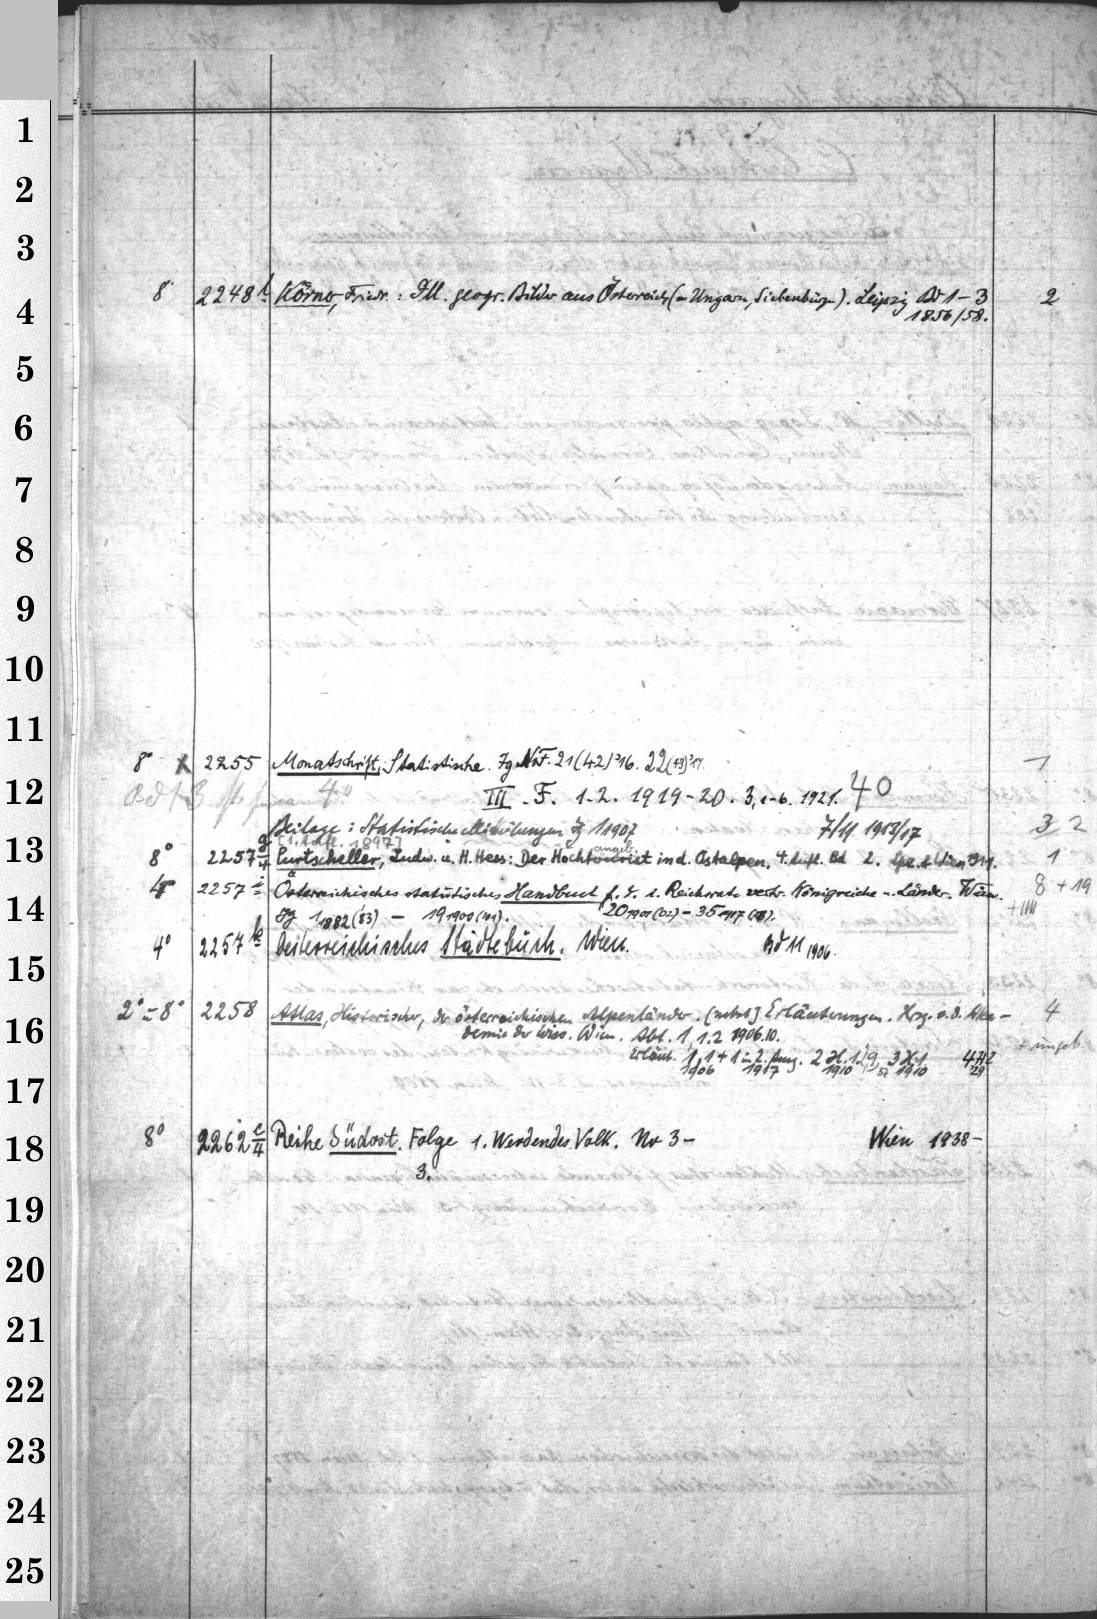 1
2
3
8° 2248 Körner, Friedr.: Ill. geogr. Bilder aus Österreich (- Ungarn, Siebenbürgen). Leipzig Bd 1-3 2
4
1856/58.
5
6
7
8
9
10
11
8° X 2255 Monatschrift, Statistische. Jg. N.F. 21(42)'16. 22(43)'17. 1
12
4°
III. F. 1.2. 1919-20. 3, 1-6. 1921. 40
Beilage: Statistische Mitteilungen Jg 1 1907 7/11 1913/17 3 2
13
[1. Aufl. 1897] angeb.
8° 2257 g/4 Purtscheller, Ludw. u. H. Hess: Der Hochtourist in d. Ostalpen. 4. Aufl. Bd 2. Lpz. & Wien 1911. 1
4° 2257 i Österreichisches statistisches Handbuch f. d. i. Reichsrate vertr. Königreiche u. Länder. Wien. 8 + 19
14
Jg 1 1882(83) - 19 1900(01). 20 1901(02) - 35 1917(18). + IIII
4° 2257 k Oesterreichisches Städtebuch. Wien. Bd 11 1906.
15
2° = 8° 2258 Atlas, Historischer, der österreichischen Alpenländer. [nebst] Erläuterungen. Hrg. v. d. Aka- 4
16
demie der Wiss. Wien. Abt. 1, 1.2 1906.10. + ungeb.
Erläut. 1, 1 + 1 2. Ausg. 2 H. 1 3 H. 1 4 H 2
1906 1917 1910 1910 29
17
8° 2262 c/4 Reihe Südost. Folge 1. Werdendes Volk. Nr 3- Wien 1938-
18
3.
19
20
21
22
23
24
25